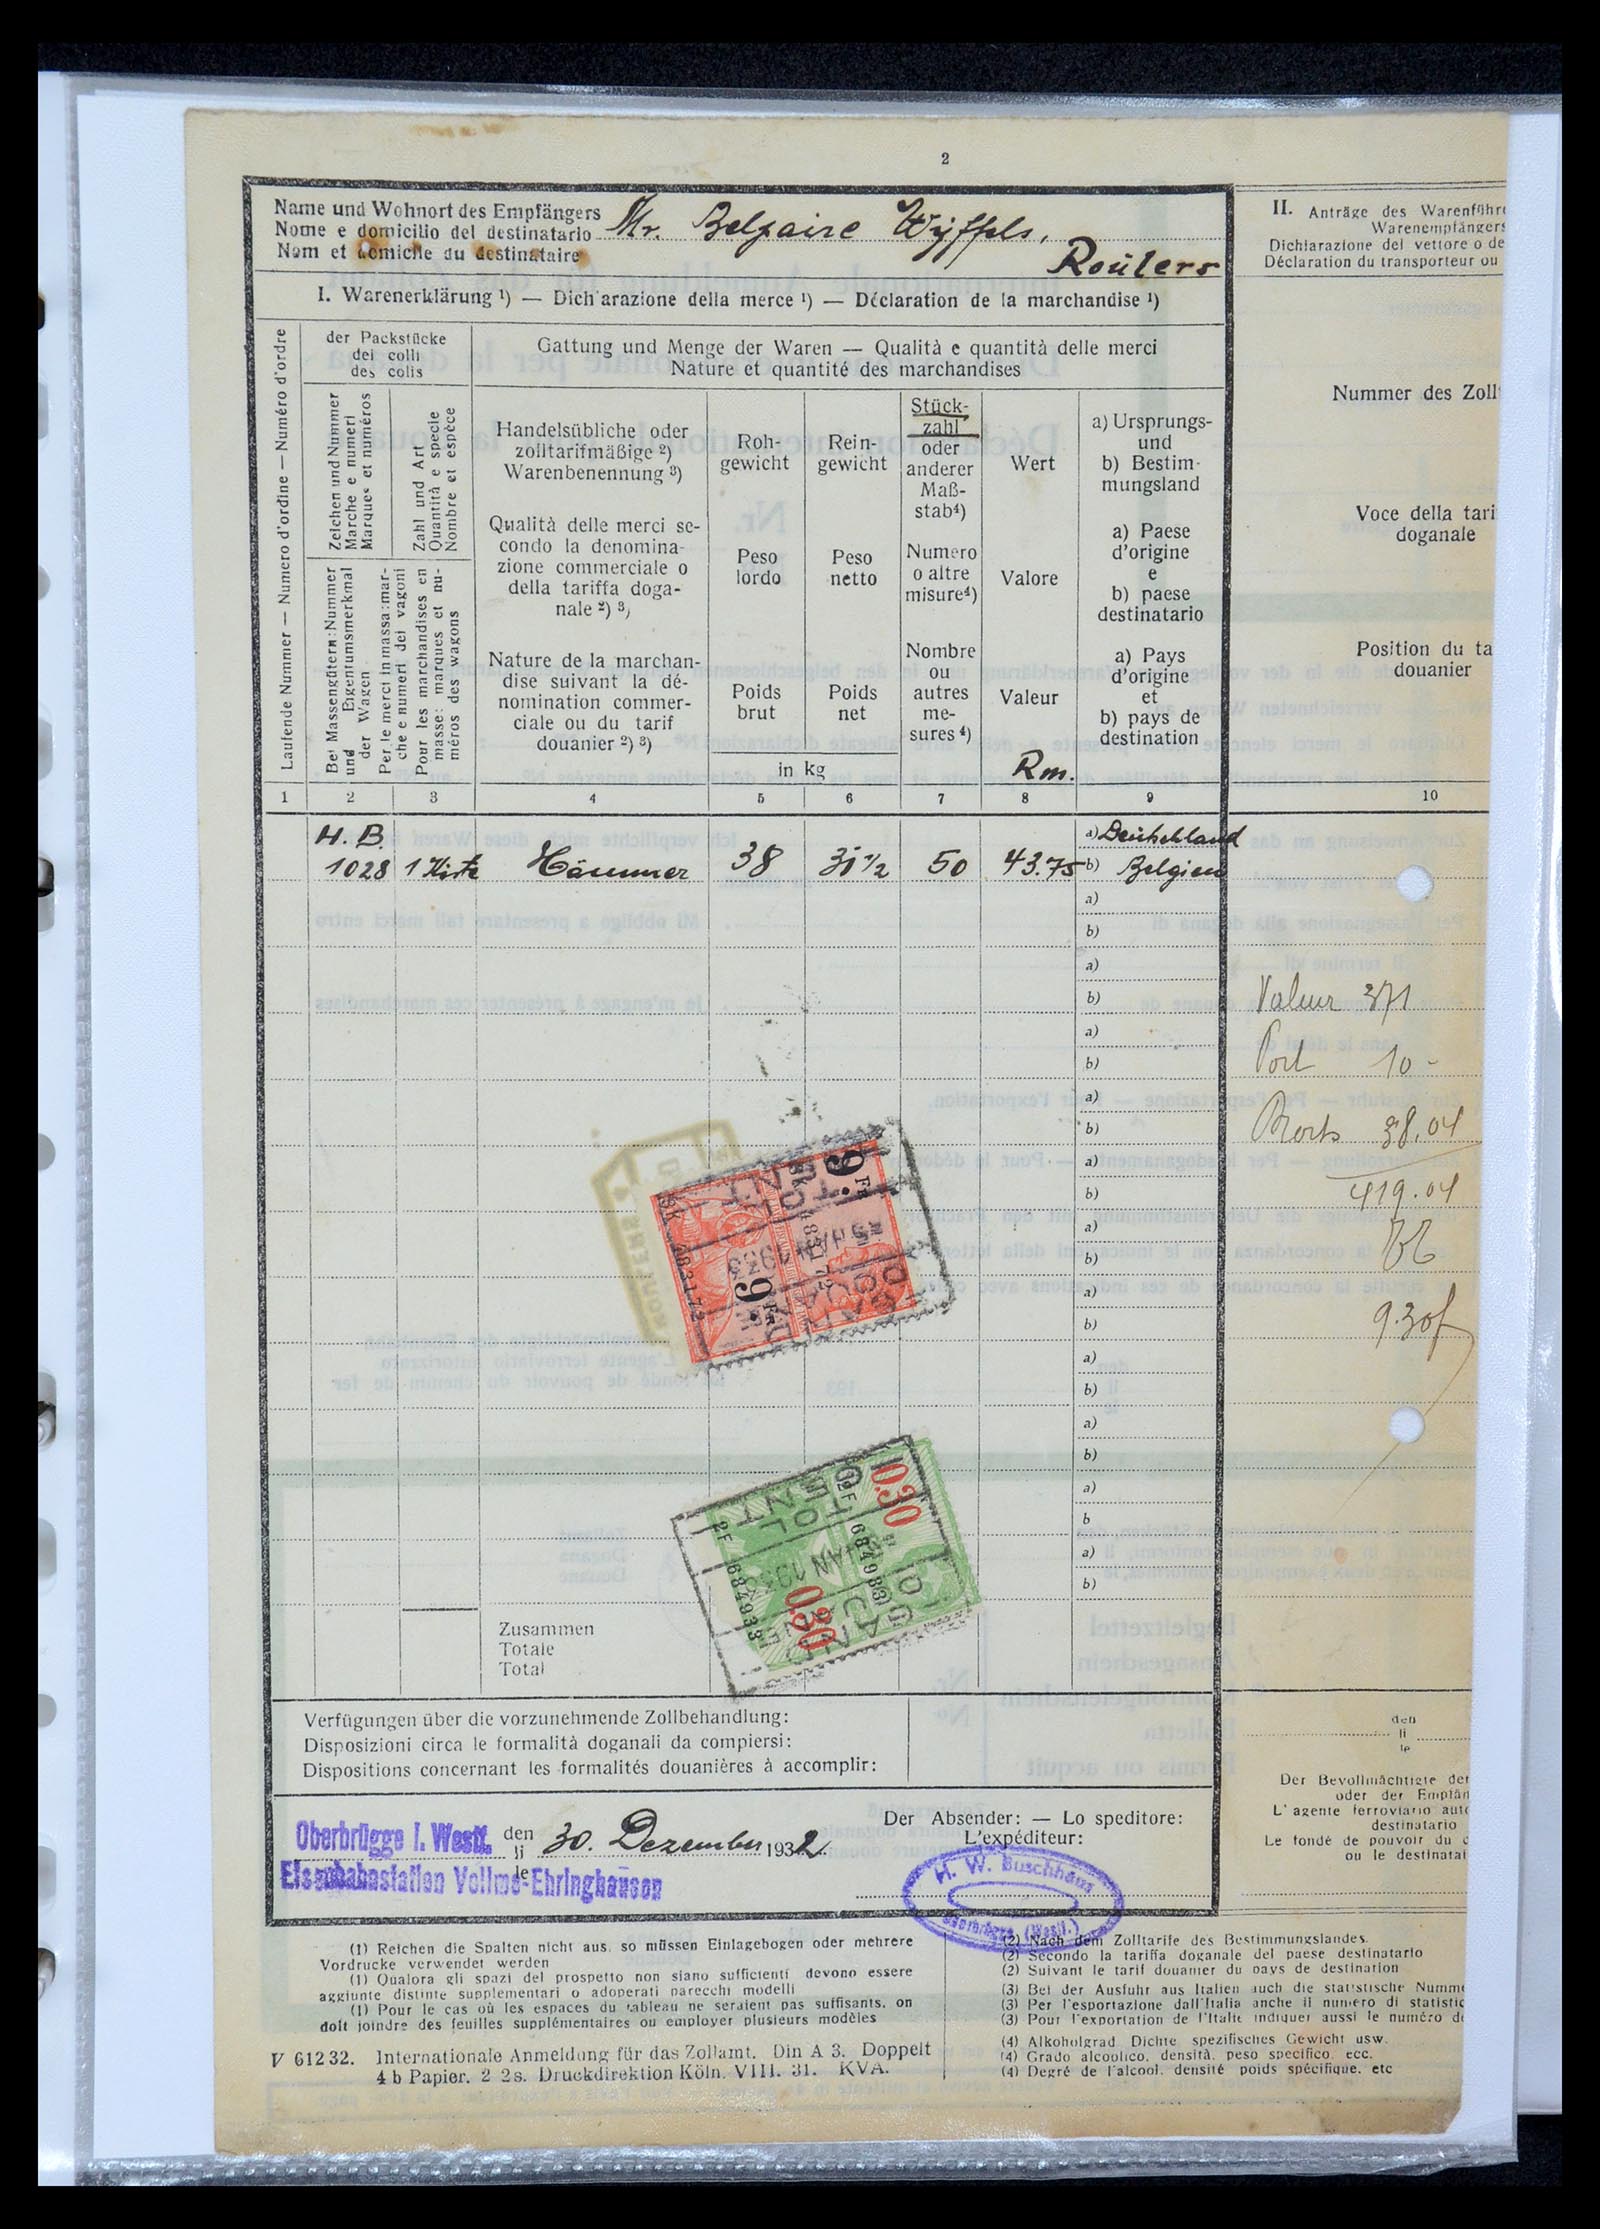 2
Name und Wohnort des Empfängers
Nome e domicilio del destinatario
Nom et domicile du destinataire
Mr. Belpaire Wyffels,
Roulers
I. Warenerklärung ¹) — Dichiarazione della merce ¹) — Déclaration de la marchandise ¹)
Laufende Nummer — Numero d'ordine — Numéro d'ordre
der Packstücke
dei colli
des colis
Gattung und Menge der Waren — Qualità e quantità delle merci
Nature et quantité des marchandises
Zeichen und Nummer
Marche e numeri
Marques et numéros
Zahl und Art
Quantità e specie
Nombre et espèce
Bei Massengütern: Nummer
und Eigentumsmerkmal
der Wagen
Per le merci in massa: mar-
che e numeri dei vagoni
Pour les marchandises en
masse: marques et nu-
méros des wagons
Handelsübliche oder
zolltarifmäßige ²)
Warenbenennung ³)
Qualità delle merci se-
condo la denomina-
zione commerciale o
della tariffa doga-
nale ²) ³)
Nature de la marchan-
dise suivant la dé-
nomination commer-
ciale ou du tarif
douanier ²) ³)
Roh-
gewicht
Peso
lordo
Poids
brut
Rein-
gewicht
Peso
netto
Poids
net
in kg
Stück-
zahl
oder
anderer
Maß-
stab⁴)
Numero
o altre
misure⁴)
Nombre
ou
autres
me-
sures ⁴)
Wert
Valore
Valeur
Rm.
a) Ursprungs-
und
b) Bestim-
mungsland
a) Paese
d'origine
e
b) paese
destinatario
a) Pays
d'origine
et
b) pays de
destination
1 2 3 4 5 6 7 8 9 10
H. B.
1028 1 Kiste Hämmer 38 31½ 50 43.75
a) Deutschland
b) Belgien
a)
b)
a)
b)
a)
b)
a)
b)
a)
b)
a)
b)
a)
b)
a)
b)
a)
b)
a)
b
a)
b)
II. Anträge des Warenführe
Warenempfängers
Dichiarazione del vettore o de
Déclaration du transporteur ou
Nummer des Zoll
Voce della tari
doganale
Position du ta
douanier
Valeur 371
Port 10 -
38.04
419.04
9.30
9 Fr
9 Fr
483172
483172
0.30
0.30
684938
Zusammen
Totale
Total
Verfügungen über die vorzunehmende Zollbehandlung:
Disposizioni circa le formalità doganali da compiersi:
Dispositions concernant les formalités douanières à accomplir:
Oberbrügge i. Westf.
Eisenbahnstation Vollme-Ehringhausen
den
li
le
30. Dezember 1932.
Der Absender: — Lo speditore:
L'expéditeur:
H. W. Buschhaus
Oberbrügge (Westf.)
den
li
le
Der Bevollmächtigte der
oder der Empfän
L'agente ferroviario auto
destinatario
Le fondé de pouvoir du c
ou le destinatai
(1) Reichen die Spalten nicht aus, so müssen Einlagebogen oder mehrere
Vordrucke verwendet werden
(1) Qualora gli spazi del prospetto non siano sufficienti devono essere
aggiunte distinte supplementari o adoperati parecchi modelli
(1) Pour le cas où les espaces du tableau ne seraient pas suffisants, on
doit joindre des feuilles supplémentaires ou employer plusieurs modèles
(2) Nach dem Zolltarife des Bestimmungslandes.
(2) Secondo la tariffa doganale del paese destinatario
(2) Suivant le tarif douanier du pays de destination
(3) Bei der Ausfuhr aus Italien auch die statistische Numme
(3) Per l'esportazione dall'Italia anche il numero di statistic
(3) Pour l'exportation de l'Italie indiquer aussi le numéro de
(4) Alkoholgrad, Dichte, spezifisches Gewicht usw.
(4) Grado alcoolico, densità, peso specifico, ecc.
(4) Degré de l'alcool, densité poids spécifique, etc
V 612 32. Internationale Anmeldung für das Zollamt. Din A 3. Doppelt
4 b Papier. 2 2s. Druckdirektion Köln. VIII. 31. KVA.